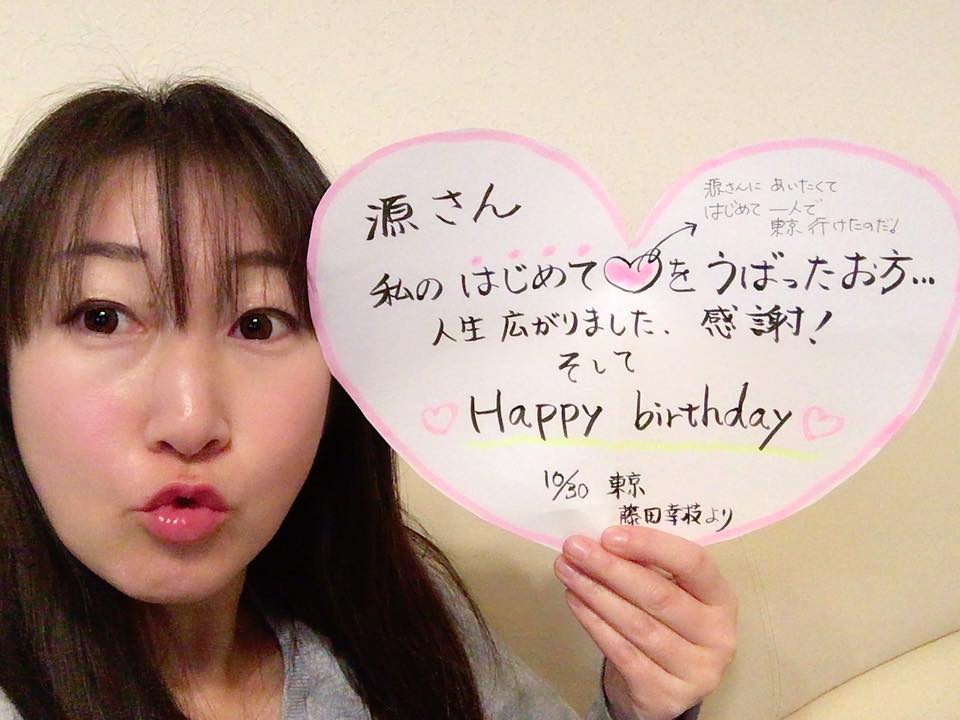 源さん
源さんに あいたくて
はじめて 一人で
東京 行けたのだ!
私の はじめて をうばったお方…
人生 広がりました、感謝!
そして
Happy birthday
10/30 東京
藤田幸枝より